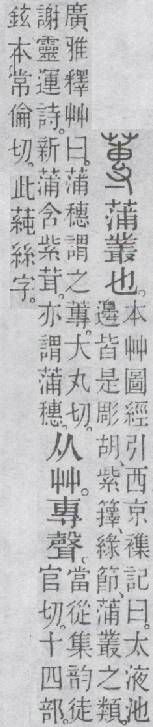 蓴蒲叢也。
本艸圖經引西京襍記曰。太液池
邊皆是彫胡、紫籜、綠節、蒲叢之類。
廣雅釋艸曰。蒲穗謂之蓴。大丸切。
謝靈運詩。新蒲含紫茸。亦謂蒲穗。
从艸。專聲。
當從集韵徒
官切。十四部。
鉉本常倫切。此蒓絲字。